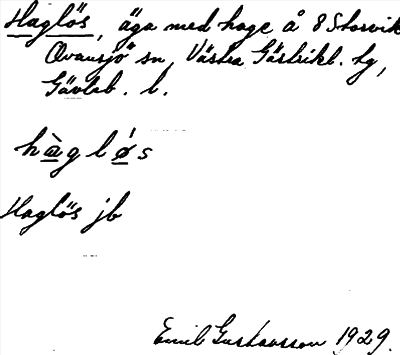 Haglös, äga med hage å 8 Storvik
Ovansjö sn, Västra Gästrikl. hg,
Gävleb. l.
hàgløs
Haglös jb
Emil Gustavsson 1929.